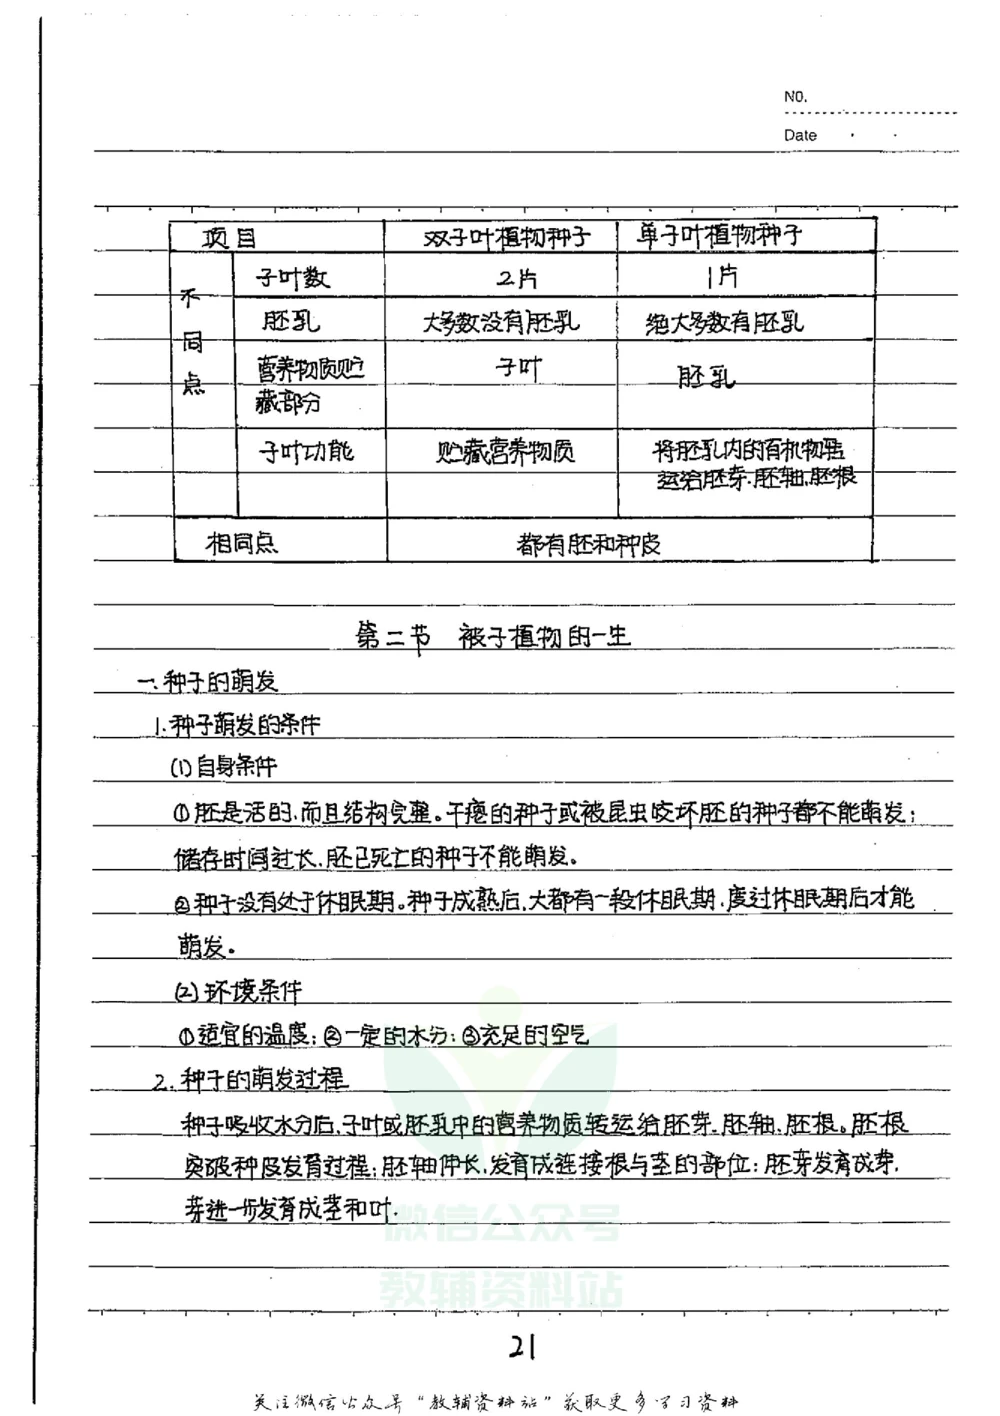 NO.
Date
项目 双子叶植物种子 单子叶植物种子
不同点 子叶数 2片 1片
胚乳 大多数没有胚乳 绝大多数有胚乳
营养物质贮藏部分 子叶 胚乳
子叶功能 贮藏营养物质 将胚乳内的有机物质
运给胚芽、胚轴、胚根
相同点 都有胚和种皮
第二节 被子植物的一生
一、种子的萌发
1.种子萌发的条件
(1)自身条件
①胚是活的,而且结构完整。干瘪的种子或被昆虫咬坏胚的种子都不能萌发;
储存时间过长,胚已死亡的种子不能萌发。
②种子没有处于休眠期。种子成熟后,大都有一段休眠期,度过休眠期后才能
萌发。
(2)环境条件
①适宜的温度;②一定的水分;③充足的空气
2.种子的萌发过程
种子吸收水分后,子叶或胚乳中的营养物质转运给胚芽、胚轴、胚根。胚根
突破种皮发育过程;胚轴伸长,发育成连接根与茎的部位;胚芽发育成芽,
芽进一步发育成茎和叶.
微信公众号
教辅资料站
21
关注微信公众号“教辅资料站”获取更多学习资料